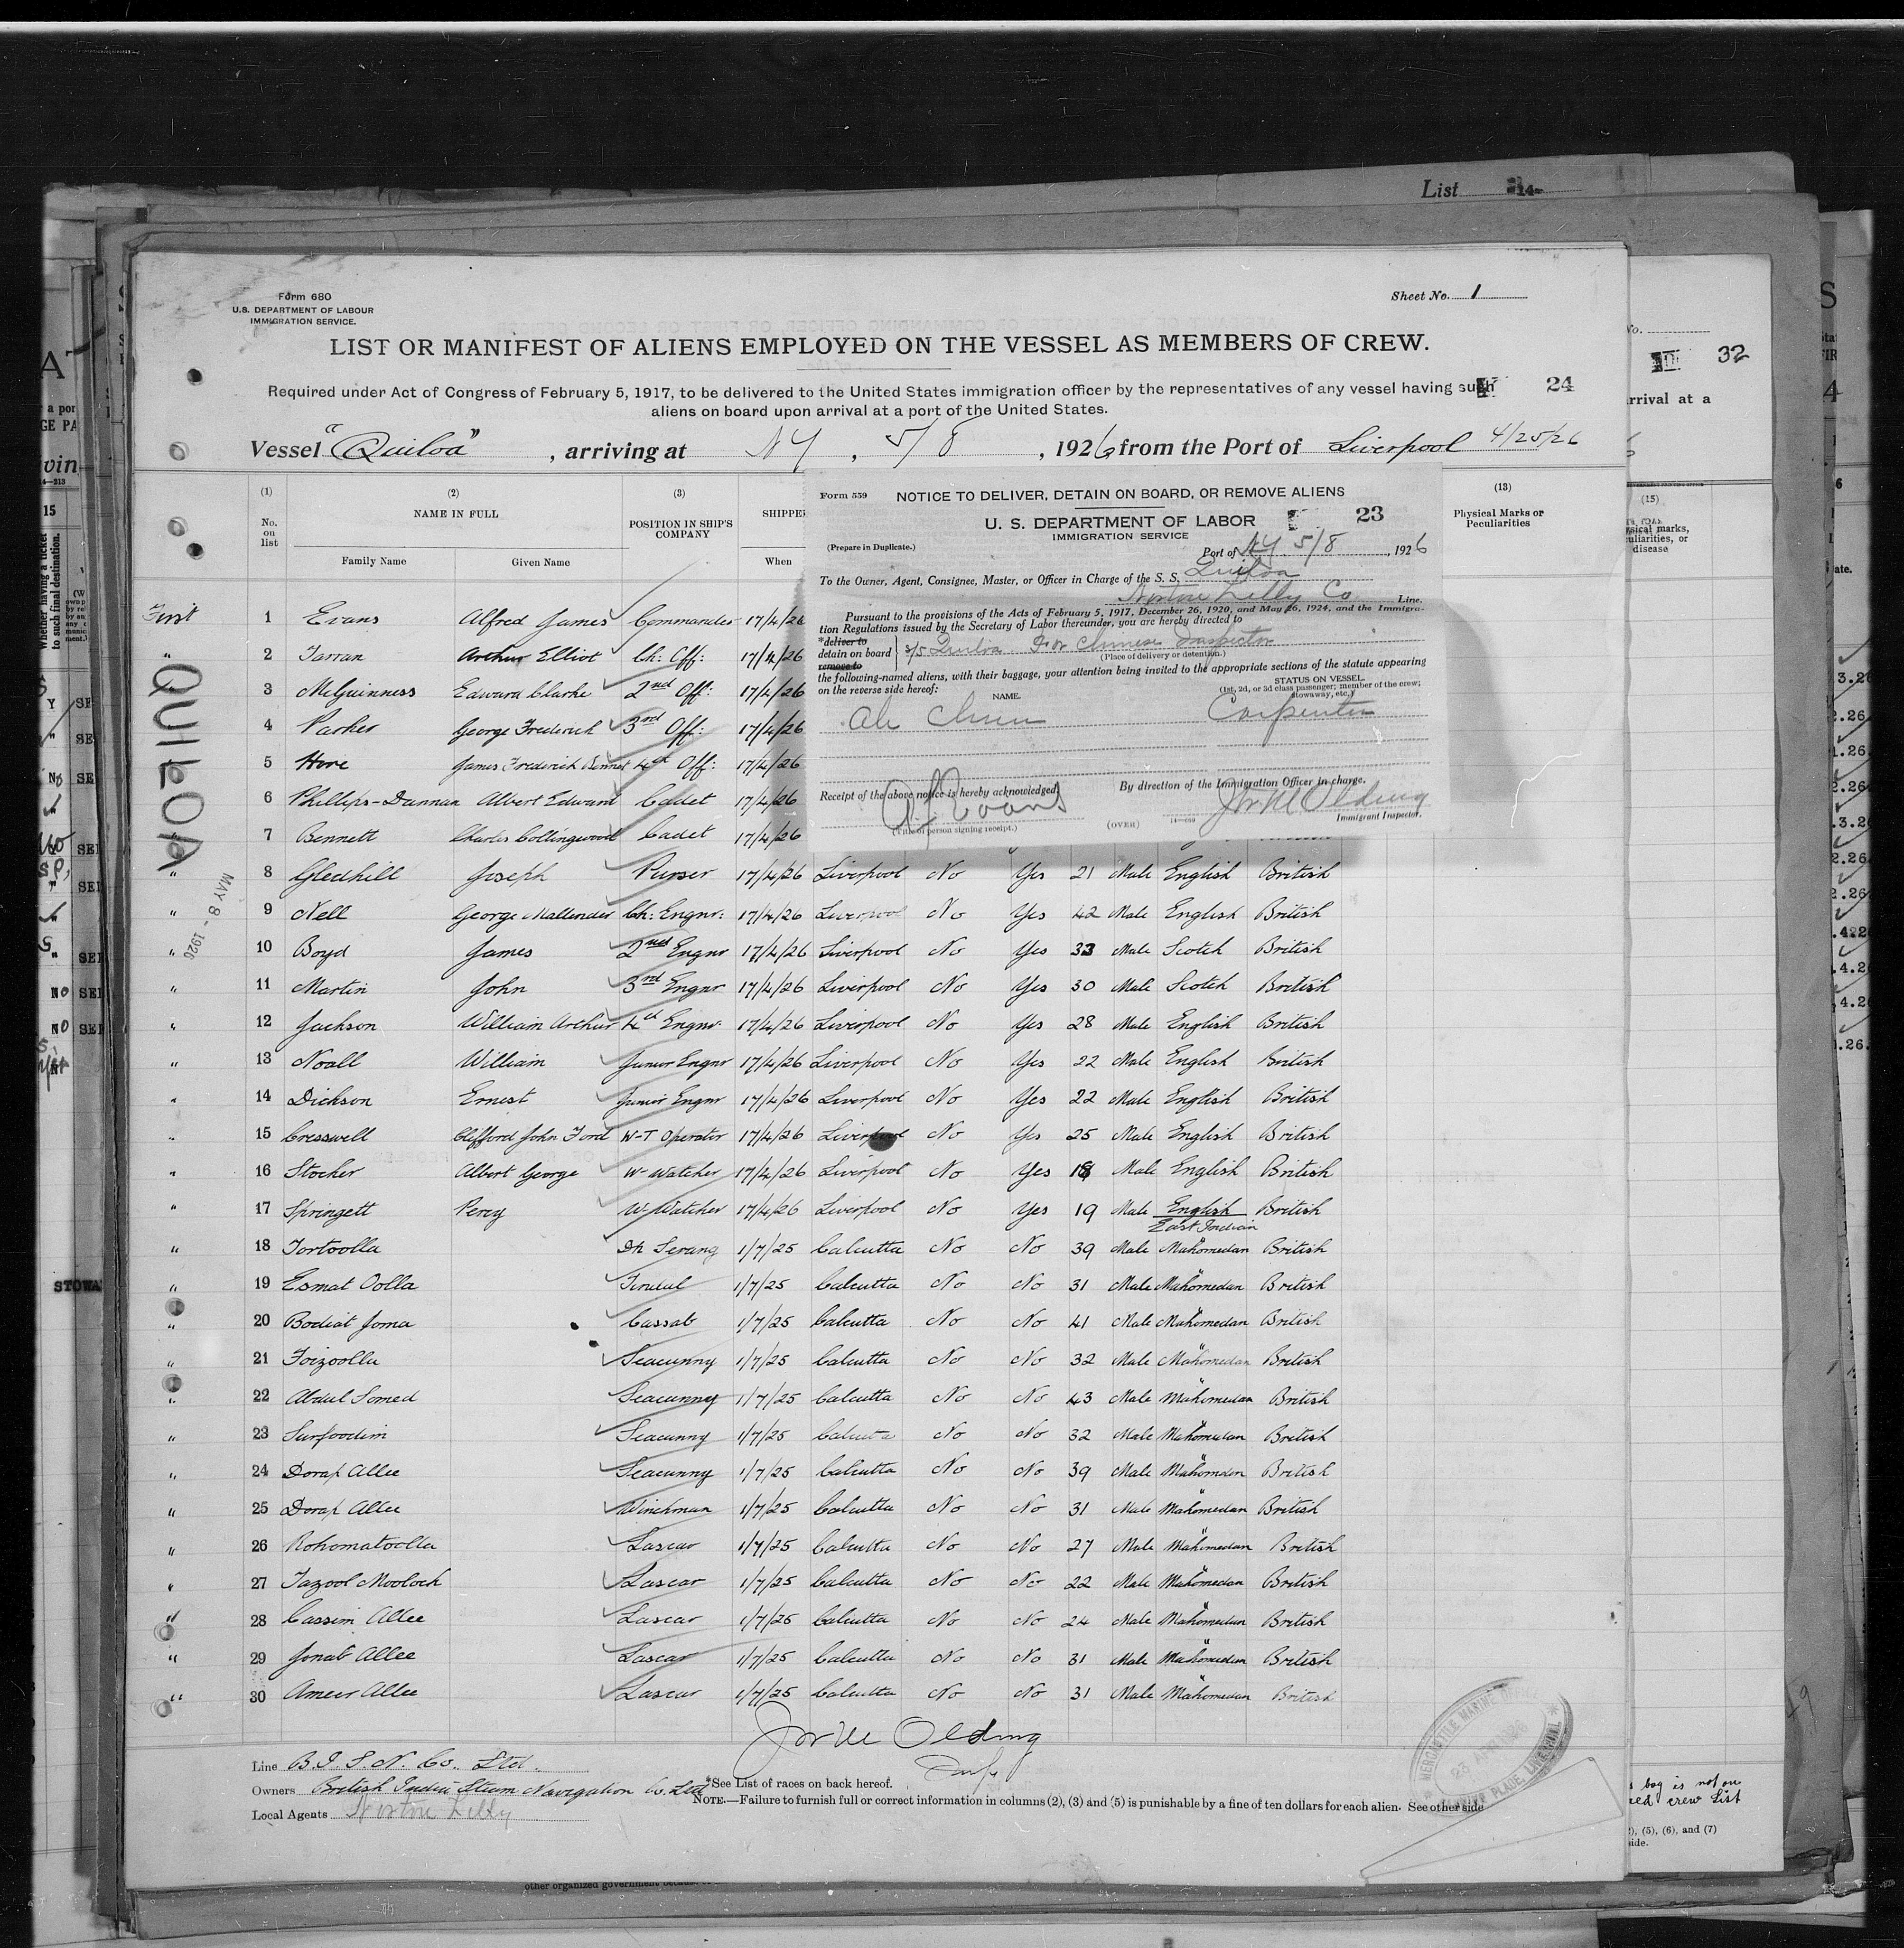 List 14
Form 680
U.S. DEPARTMENT OF LABOUR
IMMIGRATION SERVICE.
Sheet No. 1
LIST OR MANIFEST OF ALIENS EMPLOYED ON THE VESSEL AS MEMBERS OF CREW.
Required under Act of Congress of February 5, 1917, to be delivered to the United States immigration officer by the representatives of any vessel having such
aliens on board upon arrival at a port of the United States.
24
Vessel "Quiloa", arriving at NY, 5/8, 1926 from the Port of Liverpool 4/25/26
(1) (2) (3) (13)
No. on list NAME IN FULL POSITION IN SHIP'S COMPANY SHIPPE Physical Marks or Peculiarities
Family Name Given Name When
Form 559 NOTICE TO DELIVER, DETAIN ON BOARD, OR REMOVE ALIENS
U. S. DEPARTMENT OF LABOR 23
IMMIGRATION SERVICE
(Prepare in Duplicate.)
Port of NY 5/8, 1926
To the Owner, Agent, Consignee, Master, or Officer in Charge of the S. S. Quiloa
Norton Lilly Co Line.
Pursuant to the provisions of the Acts of February 5, 1917, December 26, 1920, and May 26, 1924, and the Immigra-
tion Regulations issued by the Secretary of Labor thereunder, you are hereby directed to
*deliver to
detain on board s/s Quiloa For Chinese Inspector
remove to (Place of delivery or detention.)
the following-named aliens, with their baggage, your attention being invited to the appropriate sections of the statute appearing
on the reverse side hereof:
NAME. STATUS ON VESSEL.
(1st, 2d, or 3d class passenger; member of the crew; stowaway, etc.)
Ah Chun Carpenter
Receipt of the above notice is hereby acknowledged. By direction of the Immigration Officer in charge.
A J Evans Jno M Olding
(Title of person signing receipt.) (OVER) Immigrant Inspector.
First 1 Evans Alfred James Commander 17/4/26
" 2 Tarran Arthur Elliot Ch: Off: 17/4/26
3 McGuinness Edward Clarke 2nd Off: 17/4/26
4 Parker George Frederick 3rd Off: 17/4/26
5 Hore James Frederick Bennet 4th Off: 17/4/26
6 Phillips-Dannan Albert Edward Cadet 17/4/26
7 Bennett Charles Collingwood Cadet 17/4/26
QUILOA
MAY 8 - 1926
" 8 Gledhill Joseph Purser 17/4/26 Liverpool No Yes 21 Male English British
" 9 Nell George Mallender Ch: Engnr: 17/4/26 Liverpool No Yes 42 Male English British
" 10 Boyd James 2nd Engnr 17/4/26 Liverpool No Yes 33 Male Scotch British
" 11 Martin John 3rd Engnr 17/4/26 Liverpool No Yes 30 Male Scotch British
" 12 Jackson William Arthur 4th Engnr. 17/4/26 Liverpool No Yes 28 Male English British
" 13 Noall William Junior Engnr 17/4/26 Liverpool No Yes 22 Male English British
" 14 Dickson Ernest Junior Engnr 17/4/26 Liverpool No Yes 22 Male English British
" 15 Cresswell Clifford John Ford W-T Operator 17/4/26 Liverpool No Yes 25 Male English British
" 16 Stocker Albert George W-Watcher 17/4/26 Liverpool No Yes 18 Male English British
" 17 Springett Percy W-Watcher 17/4/26 Liverpool No Yes 19 Male English British
East Indian
" 18 Tortoolla Dk Serang 1/7/25 Calcutta No No 39 Male Mahomedan British
" 19 Esmat Oolla Tindal 1/7/25 Calcutta No No 31 Male Mahomedan British
" 20 Bodiat Joma Cassab 1/7/25 Calcutta No No 41 Male Mahomedan British
" 21 Foizoolla Seacunny 1/7/25 Calcutta No No 32 Male Mahomedan British
" 22 Abdul Somed Seacunny 1/7/25 Calcutta No No 43 Male Mahomedan British
" 23 Surfoodin Seacunny 1/7/25 Calcutta No No 32 Male Mahomedan British
" 24 Dorap Allee Seacunny 1/7/25 Calcutta No No 39 Male Mahomdan British
" 25 Dorap Allee Winchman 1/7/25 Calcutta No No 31 Male Mahomedan British
" 26 Rohomatoolla Lascar 1/7/25 Calcutta No No 27 Male Mahomedan British
" 27 Fazool Moolock Lascar 1/7/25 Calcutta No No 22 Male Mahomedan British
" 28 Cassim Allee Lascar 1/7/25 Calcutta No No 24 Male Mahomedan British
" 29 Jonab Allee Lascar 1/7/25 Calcutta No No 31 Male Mahomedan British
" 30 Ameer Allee Lascar 1/7/25 Calcutta No No 31 Male Mahomedan British
Jno M Olding
Line B.I.S.N. Co. Ltd.
Owners British India Steam Navigation Co. Ltd
Local Agents Norton Lilly
*See List of races on back hereof.
NOTE.—Failure to furnish full or correct information in columns (2), (3) and (5) is punishable by a fine of ten dollars for each alien. See other side
MERCANTILE MARINE OFFICE
32
rrival at a
(15)
disease
bag is not on
crew list
(5), (6), and (7)
side.
STOWA